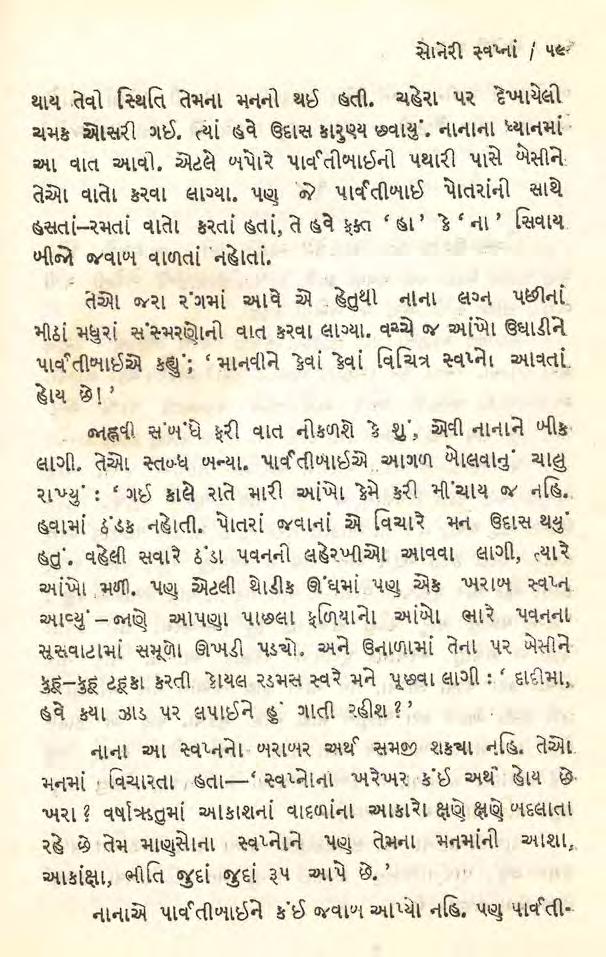 સોનેરી સ્વપ્નાં / ૫૯
થાય તેવી સ્થિતિ તેમના મનની થઈ હતી. ચહેરા પર દેખાયેલી
ચમક ઓસરી ગઈ. ત્યાં હવે ઉદાસ કારુણ્ય છવાયું. નાનાના ધ્યાનમાં
આ વાત આવી. એટલે બપોરે પાર્વતીબાઈની પથારી પાસે બેસીને
તેઓ વાતો કરવા લાગ્યા. પણ જે પાર્વતીબાઈ પોતરાંની સાથે
હસતાં–રમતાં વાતો કરતાં હતાં, તે હવે ફક્ત ‘ હા ’ કે ‘ ના ’ સિવાય
બીજો જવાબ વાળતાં નહોતાં.
તેઓ જરા રંગમાં આવે એ હેતુથી નાના લગ્ન પછીનાં
મીઠાં મધુરાં સંસ્મરણોની વાત કરવા લાગ્યા. વચ્ચે જ આંખો ઉઘાડીને
પાર્વતીબાઈએ કહ્યું; ‘ માનવીને કેવાં કેવાં વિચિત્ર સ્વપ્નો આવતાં
હોય છે! ’
જાહ્નવી સંબંધે ફરી વાત નીકળશે કે શું, એવી નાનાને બીક
લાગી. તેઓ સ્તબ્ધ બન્યા. પાર્વતીબાઈએ આગળ બોલવાનું ચાલુ
રાખ્યું : ‘ ગઈ કાલે રાતે મારી આંખો કેમે કરી મીંચાય જ નહિ.
હવામાં ઠંડક નહોતી. પોતરાં જવાનાં એ વિચારે મન ઉદાસ થયું
હતું. વહેલી સવારે ઠંડા પવનની લહેરખીઓ આવવા લાગી, ત્યારે
આંખો મળી. પણ એટલી થોડીક ઊંઘમાં પણ એક ખરાબ સ્વપ્ન
આવ્યું – જાણે આપણા પાછલા ફળિયાનો આંબો ભારે પવનના
સૂસવાટામાં સમૂળો ઊખડી પડ્યો. અને ઉનાળામાં તેના પર બેસીને
કુહૂ–કુહૂ ટહૂકા કરતી કોયલ રડમસ સ્વરે મને પૂછવા લાગી : ‘ દાદીમા,
હવે કયા ઝાડ પર લપાઈને હું ગાતી રહીશ ? ’
નાના આ સ્વપ્નનો બરાબર અર્થ સમજી શક્યા નહિ. તેઓ
મનમાં વિચારતા હતા—‘ સ્વપ્નોના ખરેખર કંઈ અર્થ હોય છે
ખરા ? વર્ષાઋતુમાં આકાશનાં વાદળાંના આકારો ક્ષણે ક્ષણે બદલાતા
રહે છે તેમ માણસોના સ્વપ્નોને પણ તેમના મનમાંની આશા,
આકાંક્ષા, ભીતિ જુદાં જુદાં રૂપ આપે છે. ’
નાનાએ પાર્વતીબાઈને કંઈ જવાબ આપ્યો નહિ. પણ પાર્વતી-